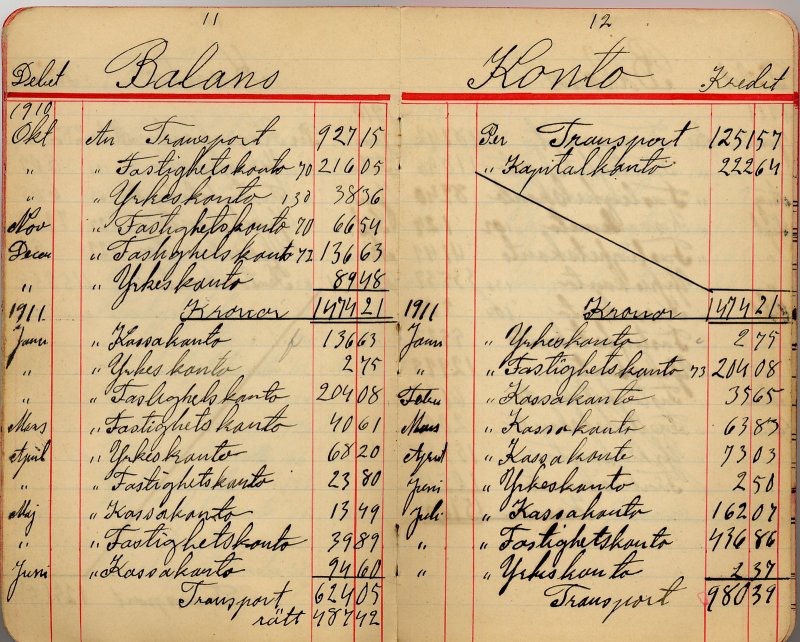 11
Debet Balans
1910
Okt An Transport 927 15
„ „ Fastighetskonto 70 216 05
„ „ Yrkeskonto 130 38 36
Nov „ Fastighetskonto 70 66 54
Decem „ Fastighetskonto 72 136 63
„ „ Yrkeskonto 89 48
1911 Kronor 1474 21
Janu „ Kassakonto 136 63
„ „ Yrkeskonto 2 75
„ „ Fastighetskonto 204 08
Mars „ Fastighetskonto 40 61
April „ Yrkeskonto 68 20
„ „ Fastighetskonto 23 80
Maj „ Kassakonto 13 49
„ „ Fastighetskonto 39 89
Juni „ Kassakonto 94 60
Transport 624 05
rätt 487 42
12
Konto Kredit
Per Transport 1251 57
„ Kapitalkonto 222 64
1911 Kronor 1474 21
Janu „ Yrkeskonto 2 75
„ „ Fastighetskonto 73 204 08
Febru „ Kassakonto 35 65
Mars „ Kassakonto 63 83
April „ Kassakonto 73 03
Juni „ Yrkeskonto 2 50
Juli „ Kassakonto 162 07
„ „ Fastighetskonto 436 86
„ „ Yrkeskonto 2 37
Transport 980 39